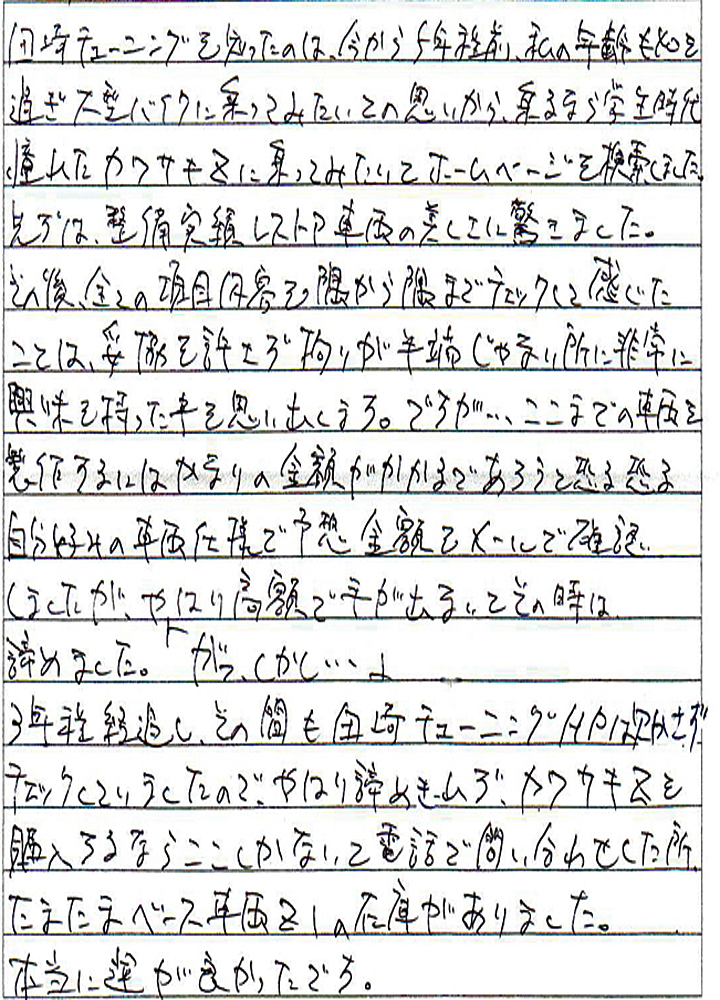 田崎チューニングを知ったのは、今から5年程前、私の年齢も40を
過ぎ大型バイクに乗ってみたいとの思いから、乗るなら学生時代
憧れたカワサキZに乗ってみたいとホームページを検索しました。
先ずは、整備実績レストア車両の美しさに驚きました。
その後、全ての項目内容を隅から隅までチェックして感じた
ことは、妥協を許さず拘りが半端じゃない所に非常に
興味を持った事を思い出します。ですが…、ここまでの車両を
製作するにはかなりの金額がかかるであろうと恐る恐る
自分好みの車両仕様で予想金額をメールで確認
しましたが、やはり高額で手が出ないとその時は
諦めました。「がっ、しかし…」
3年程経過し、その間も田崎チューニングHPは欠かさず
チェックしていましたので、やはり諦めきれず、カワサキZを
購入するならここしかないと電話で問い合わせした所、
たまたまベース車両Z1の在庫がありました。
本当に運が良かったです。